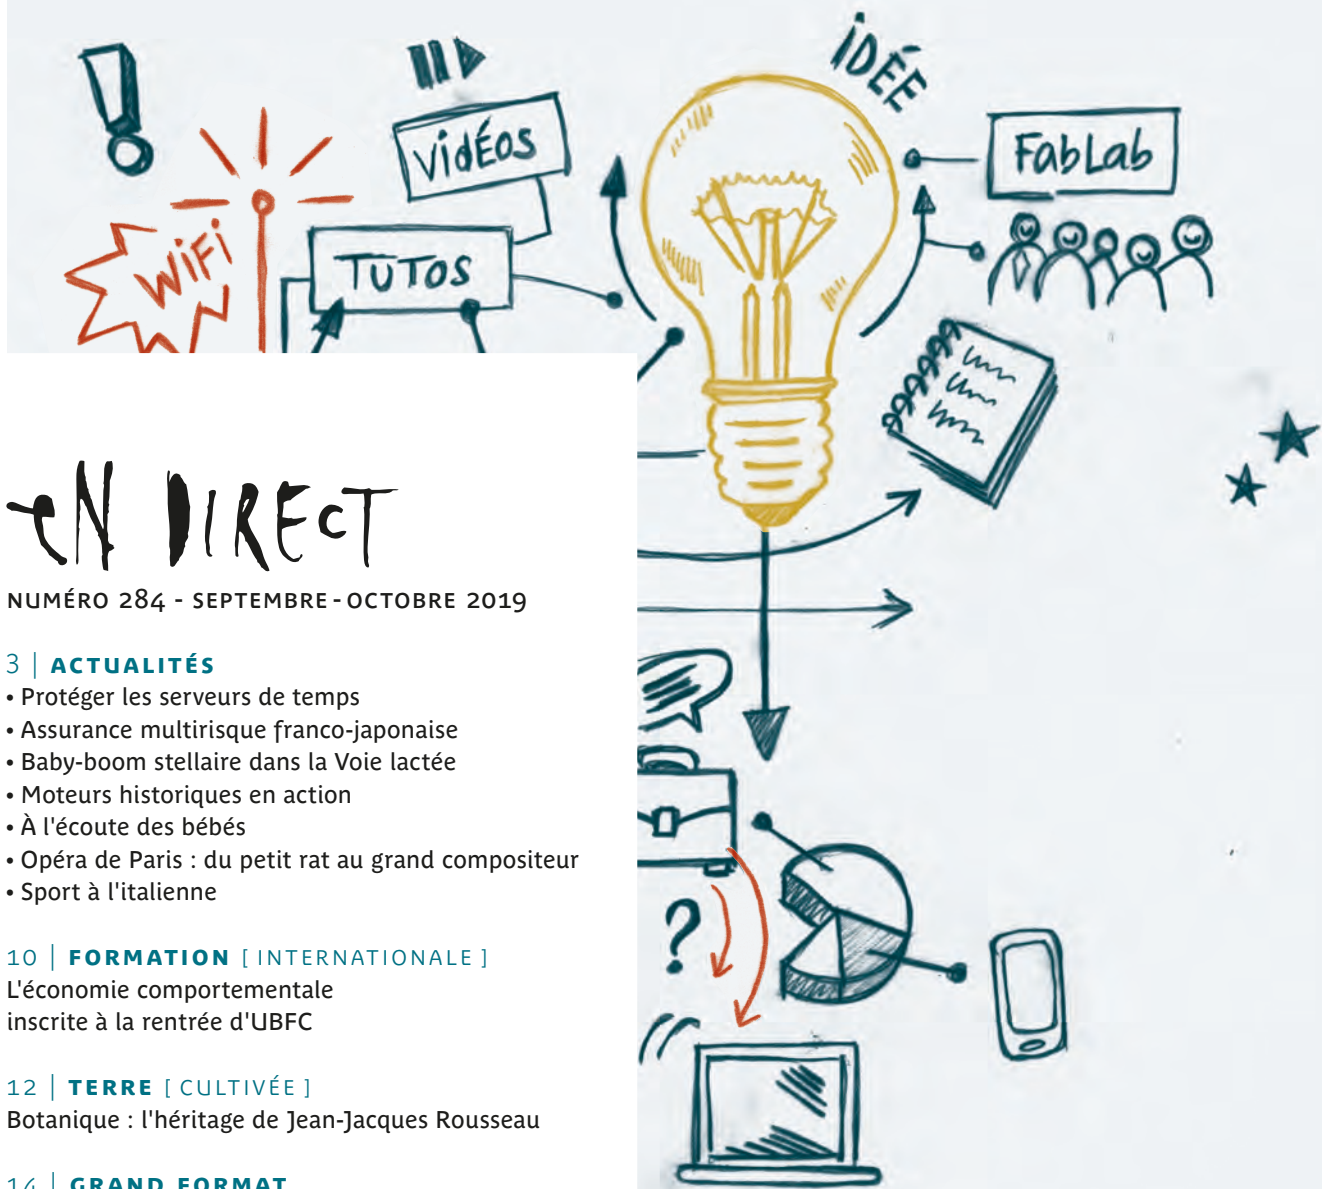 IDÉE
VIDÉOS
FabLab
WiFi
TUTOS
eN DIRECT
NUMÉRO 284 - SEPTEMBRE - OCTOBRE 2019
3 | ACTUALITÉS
• Protéger les serveurs de temps
• Assurance multirisque franco-japonaise
• Baby-boom stellaire dans la Voie lactée
• Moteurs historiques en action
• À l'écoute des bébés
• Opéra de Paris : du petit rat au grand compositeur
• Sport à l'italienne
?
10 | FORMATION [ INTERNATIONALE ]
L'économie comportementale
inscrite à la rentrée d'UBFC
12 | TERRE [ CULTIVÉE ]
Botanique : l'héritage de Jean-Jacques Rousseau
14 | GRAND FORMAT